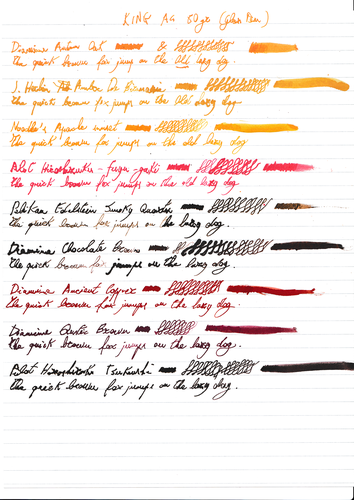 KING A4 50gr (glass Pen)
Diamine Autum Oak &
the quick brown fox jump on the Old lazy dog.
J. Herbin Ambre De Birmanie
the quick brown fox jumps on the Old lazy dog.
Noodler's Apache sunset
the quick brown fox jumps on the old lazy dog.
Pilot Hiroshizuku - fuyu-gaki
the quick brown fox jumps on the old lazy dog.
Pelikan Edelstein Smoky Quartz
the quick brown fox jumps on the lazy dog.
Diamine Chocolate Brown
the quick brown fox jumps on the lazy dog.
Diamine Ancient Copper
the quick brown fox jumps on the lazy dog.
Diamine Brown
the quick brown fox jumps on the lazy dog.
Pilot Hiroshizuku Tsukushi
the quick brown fox jumps on the lazy dog.